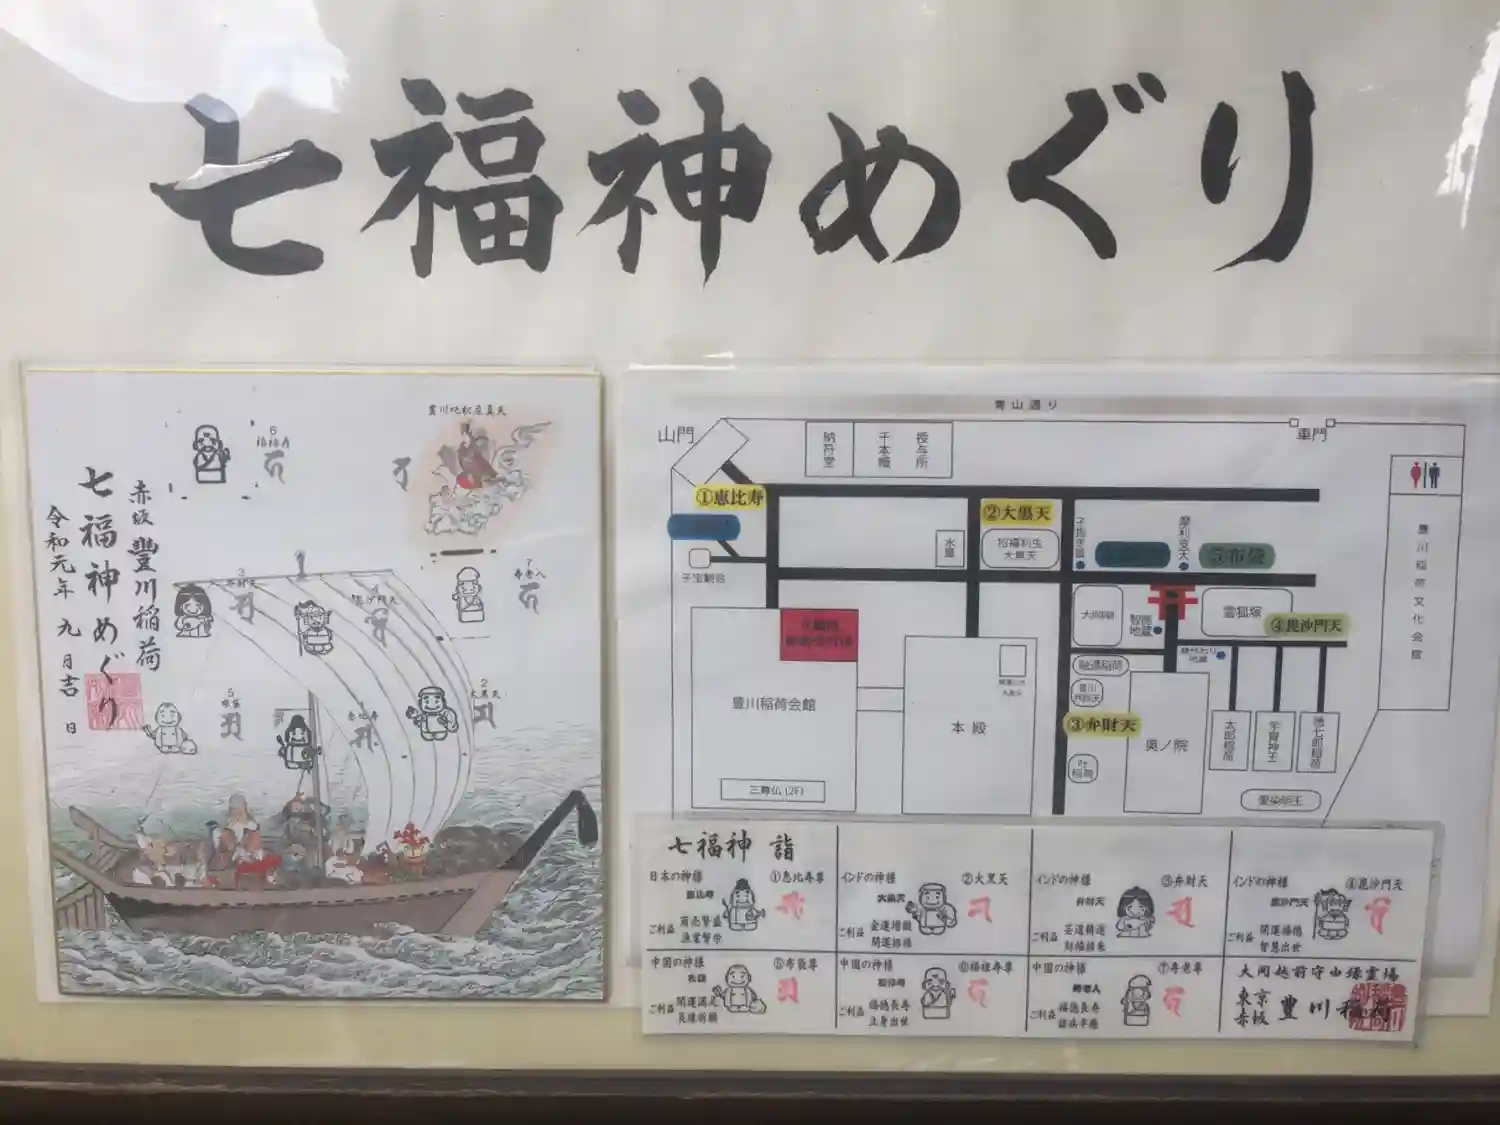 七福神めぐり
豊川吒枳尼真天
6
福禄寿
7
寿老人
3
弁財天
4
毘沙門天
5
布袋
恵比寿
2
大黒天
赤坂 豊川稲荷
七福神めぐり
令和元年 九月吉日
青山通り
山門
車門
納符堂
千本幟
授与所
①恵比寿
②大黒天
招福利生
大黒天
水屋
子宝観音
子抱き狐
摩利支天
⑤布袋
大岡廟
智恵
地蔵
霊狐塚
④毘沙門天
身代わり
地蔵
融通稲荷
豊川
弁財天
③弁財天
叶
稲荷
奥ノ院
太郎稲荷
宇賀神王
徳七郎稲荷
愛染明王
豊川稲荷文化会館
豊川稲荷会館
三尊仏 (2F)
本殿
七福神 詣
日本の神様
①恵比寿尊
ご利益
商売繁盛
漁業繁栄
インドの神様
②大黒天
大黒天
ご利益
金運増徹
開運招福
インドの神様
③弁財天
弁財天
ご利益
芸道精進
財福招来
インドの神様
④毘沙門天
毘沙門天
ご利益
開運播徳
智慧出世
中国の神様
⑤布袋尊
布袋
ご利益
開運満足
良縁祈願
中国の神様
⑥福禄寿尊
福禄寿
ご利益
福徳長寿
立身出世
中国の神様
⑦寿老尊
寿老人
ご利益
福徳長寿
諸病平癒
大岡越前守由縁霊場
東京
赤坂
豊川稲荷